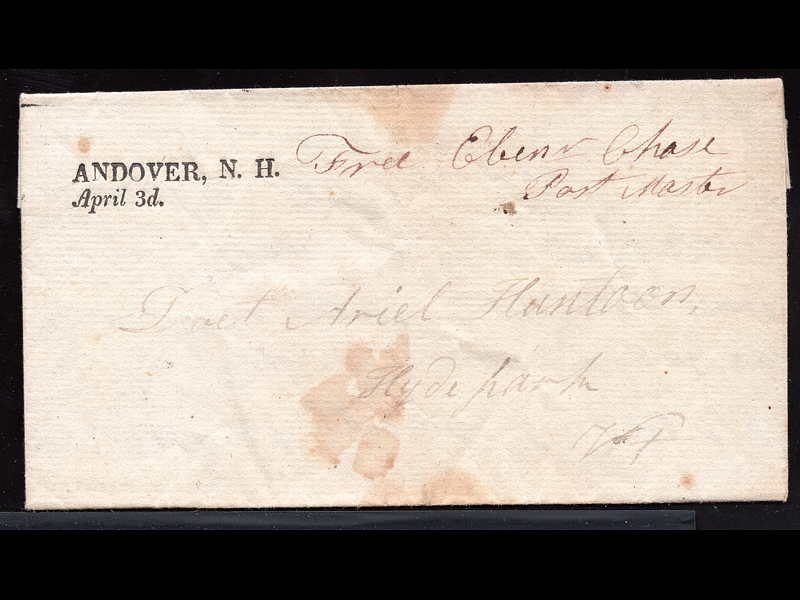 ANDOVER, N. H.
April 3d.
Free Ebenr Chase
Post Master
Doct Ariel Huntoon,
Hydepark
VT